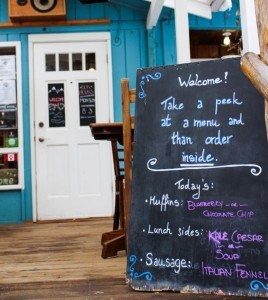 Welcome!
Take a peek
at a menu and
than order
inside.
Today's:
Muffins: Blueberry -or-
Chocolate Chip
Lunch sides: Kale Caesar
-or-
Soup
Sausage: Italian Fennel